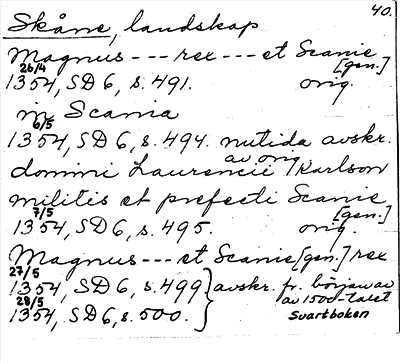 40.
Skåne, landskap
Magnus --- rex --- et Scanie
[gen.]
26/4
1354, SD 6, s. 491. orig.
in Scania
6/5
1354, SD 6, s. 494. nutida avskr.
av orig.
domini Laurencii / Karlson
militis et prefecti Scanie
[gen.]
7/5
1354, SD 6, s. 495. orig.
Magnus --- et Scanie [gen.] rex
27/5
1354, SD 6, s. 499 } avskr. fr. början av
av 1500-talet
28/5
1354, SD 6, s. 500. Svartboken